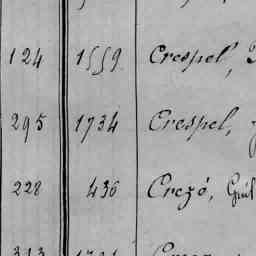 124 1559 Crespel,
295 1734 Crespel,
228 436 Crezó,